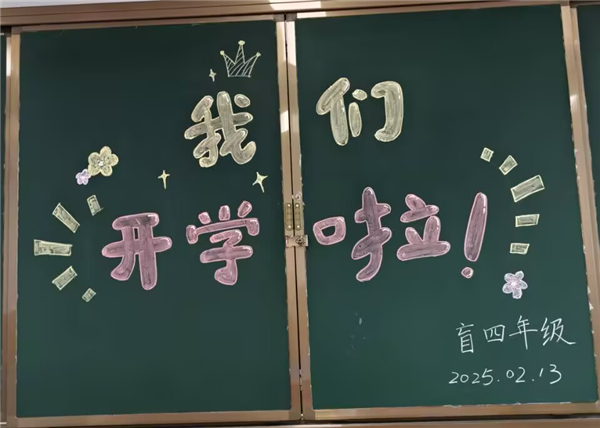 我们
开学啦!
盲四年级
2025.02.13